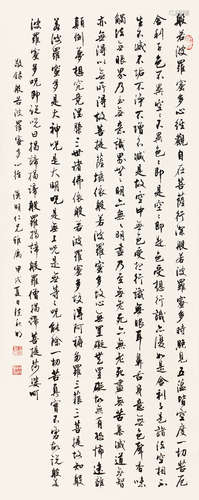 般若波羅蜜多心經觀自在菩薩行深般若波羅蜜多時照見五蘊皆空度一切苦厄
舍利子色不異空空不異色色即是空空即是色受想行識亦復如是舍利子是諸法空相不
生不滅不垢不淨不增不減是故空中無色無受想行識無眼耳鼻舌身意無色聲香味
觸法無眼界乃至無意識界無無明亦無無明盡乃至無老死亦無老死盡無苦集滅道無智
亦無得以無所得故菩提薩埵依般若波羅蜜多故心無罣礙無罣礙故無有恐怖遠離
顛倒夢想究竟涅槃三世諸佛依般若波羅蜜多故得阿耨多羅三藐三菩提故知般
若波羅蜜多是大神呪是大明呪是無上呪是無等等呪能除一切苦真實不虛故說般若
波羅蜜多呪即說呪曰揭諦揭諦般羅揭諦般羅僧揭諦菩提薩婆訶
敬錄般若波羅蜜多心經 漢明仁兄雅屬 甲戌夏日